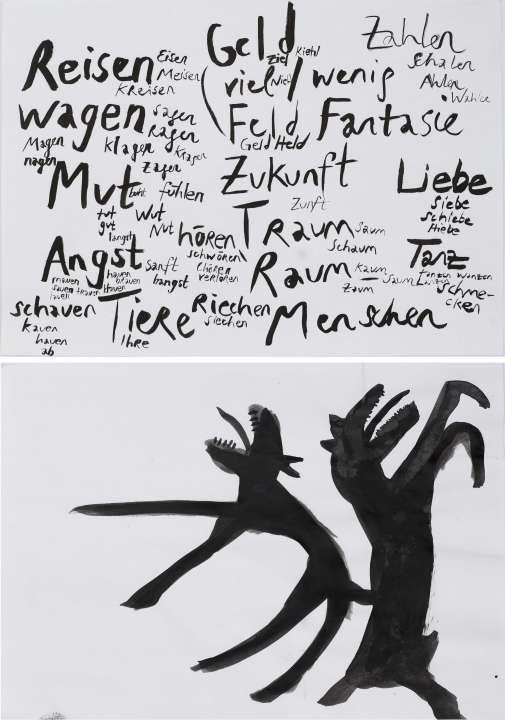 Geld
Zahlen
Reisen
Eisen
Meisen
Kreisen
viel
Ziel
wenig
schalen
Ahlen
wagen
sagen
ragen
klagen
Kragen
Zagen
Magen
nagen
Feld
Geld Held
Fantasie
Mut
fühlen
tut
Wut
gut
Nut
Zukunft
Zunft
Liebe
Siebe
schiebe
Hiebe
hören
schwören
verloren
Traum
Saum
Schaum
Angst
langst
sanft
hangst
Raum
Kaum
Zaum
Saum
Tanz
Tanzen wanzen
schme-
cken
schauen
kauen
hauen
ab
Tiere
Ihre
Riechen
siechen
Menschen